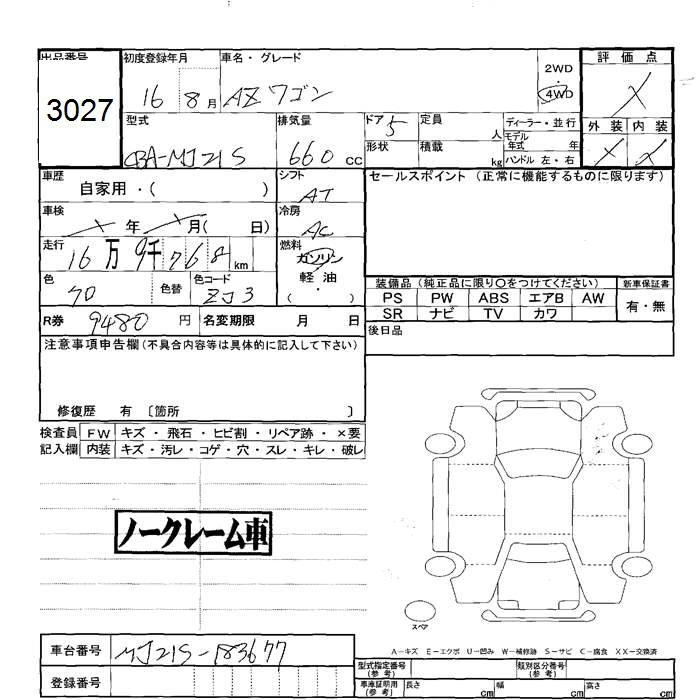 出品番号
3027
初度登録年月
16 8 月
車名・グレード
AZワゴン
2WD
・
4WD
評価点
X
外装 内装
X X
型式
CBA-MJ21S
排気量
660 cc
ドア 5
定員 人
形状
積載 kg
ディーラー・並行
モデル年式 年
ハンドル 左・右
車歴
自家用・( )
シフト
AT
車検
X 年 X 月( 日)
冷房
AC
走行
16万9千768 km
燃料
ガソリン
・
軽油
( )
色
色替
色コード
ZJ3
R券 9480 円
名変期限 月 日
セールスポイント (正常に機能するものに限ります)
装備品(純正品に限り〇をつけてください)
PS PW ABS エアB AW
SR ナビ TV カワ
新車保証書
有・無
後日品
注意事項申告欄(不具合内容等は具体的に記入して下さい)
修復歴 有 〔箇所 〕
検査員記入欄
FW キズ・飛石・ヒビ割・リペア跡・×要
内装 キズ・汚レ・コゲ・穴・スレ・キレ・破レ
ノークレーム車
スペア
A-キズ E-エクボ U-凹み W-補修跡 S-サビ C-腐食 XX-交換済
車台番号 MJ21S-183677
登録番号
型式指定番号(参考)
類別区分番号(参考)
車庫証明用(参考) 長さ cm 幅 cm 高さ cm